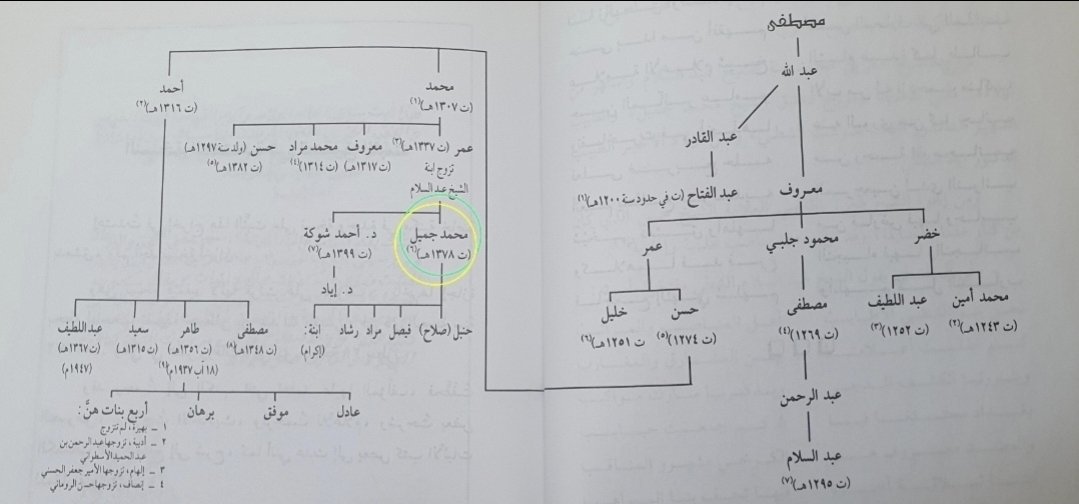 مصطفى
عبد الله
عبد القادر
عبد الفتاح (ت في حدود سنة ١٢٠٠هـ)(١)
معروف
عمر
محمود جلبي
خضر
خليل
(ت ١٢٥١هـ)(٦)
حسن
(ت ١٢٧٤هـ)(٥)
مصطفى
(ت ١٢٦٩هـ)(٤)
عبد اللطيف
(ت ١٢٥٢هـ)(٣)
محمد أمين
(ت ١٢٤٣هـ)(٢)
عبد الرحمن
عبد السلام
(ت ١٢٩٥هـ)(٧)
محمد
(ت ١٣٠٧هـ)(١)
أحمد
(ت ١٣١٦هـ)(٢)
عمر (ت ١٣٣٧هـ)(٣)
تزوج ابنة
الشيخ عبد السلام
معروف
(ت ١٣١٧هـ)
محمد مراد
(ت ١٣١٤هـ)(٤)
حسن (ولد سنة ١٢٩٧هـ)
(ت ١٣٨٢هـ)(٥)
محمد جميل
(ت ١٣٧٨هـ)(٦)
د. أحمد شوكة
(ت ١٣٩٩هـ)(٧)
د. إياد
حنبل (صلاح)
فيصل
مراد
رشاد
ابنة:
(إكرام)
مصطفى
(ت ١٣٤٨هـ)(٨)
طاهر
(ت ١٣٥٦هـ)
(١٨ آب ١٩٣٧م)(٩)
سعيد
(ت ١٣١٥هـ)
عبد اللطيف
(ت ١٣٦٧هـ)
(١٩٤٧م)
عادل
موفق
برهان
أربع بنات هنَّ:
١ ـ بهيرة، لم تتزوج
٢ ـ أديبة، تزوجها عبد الرحمن بن
عبد الحميد الأسطواني
٣ ـ إلهام، تزوجها الأمير جعفر الحسني
٤ ـ إنصاف، تزوجها حسن الروماني